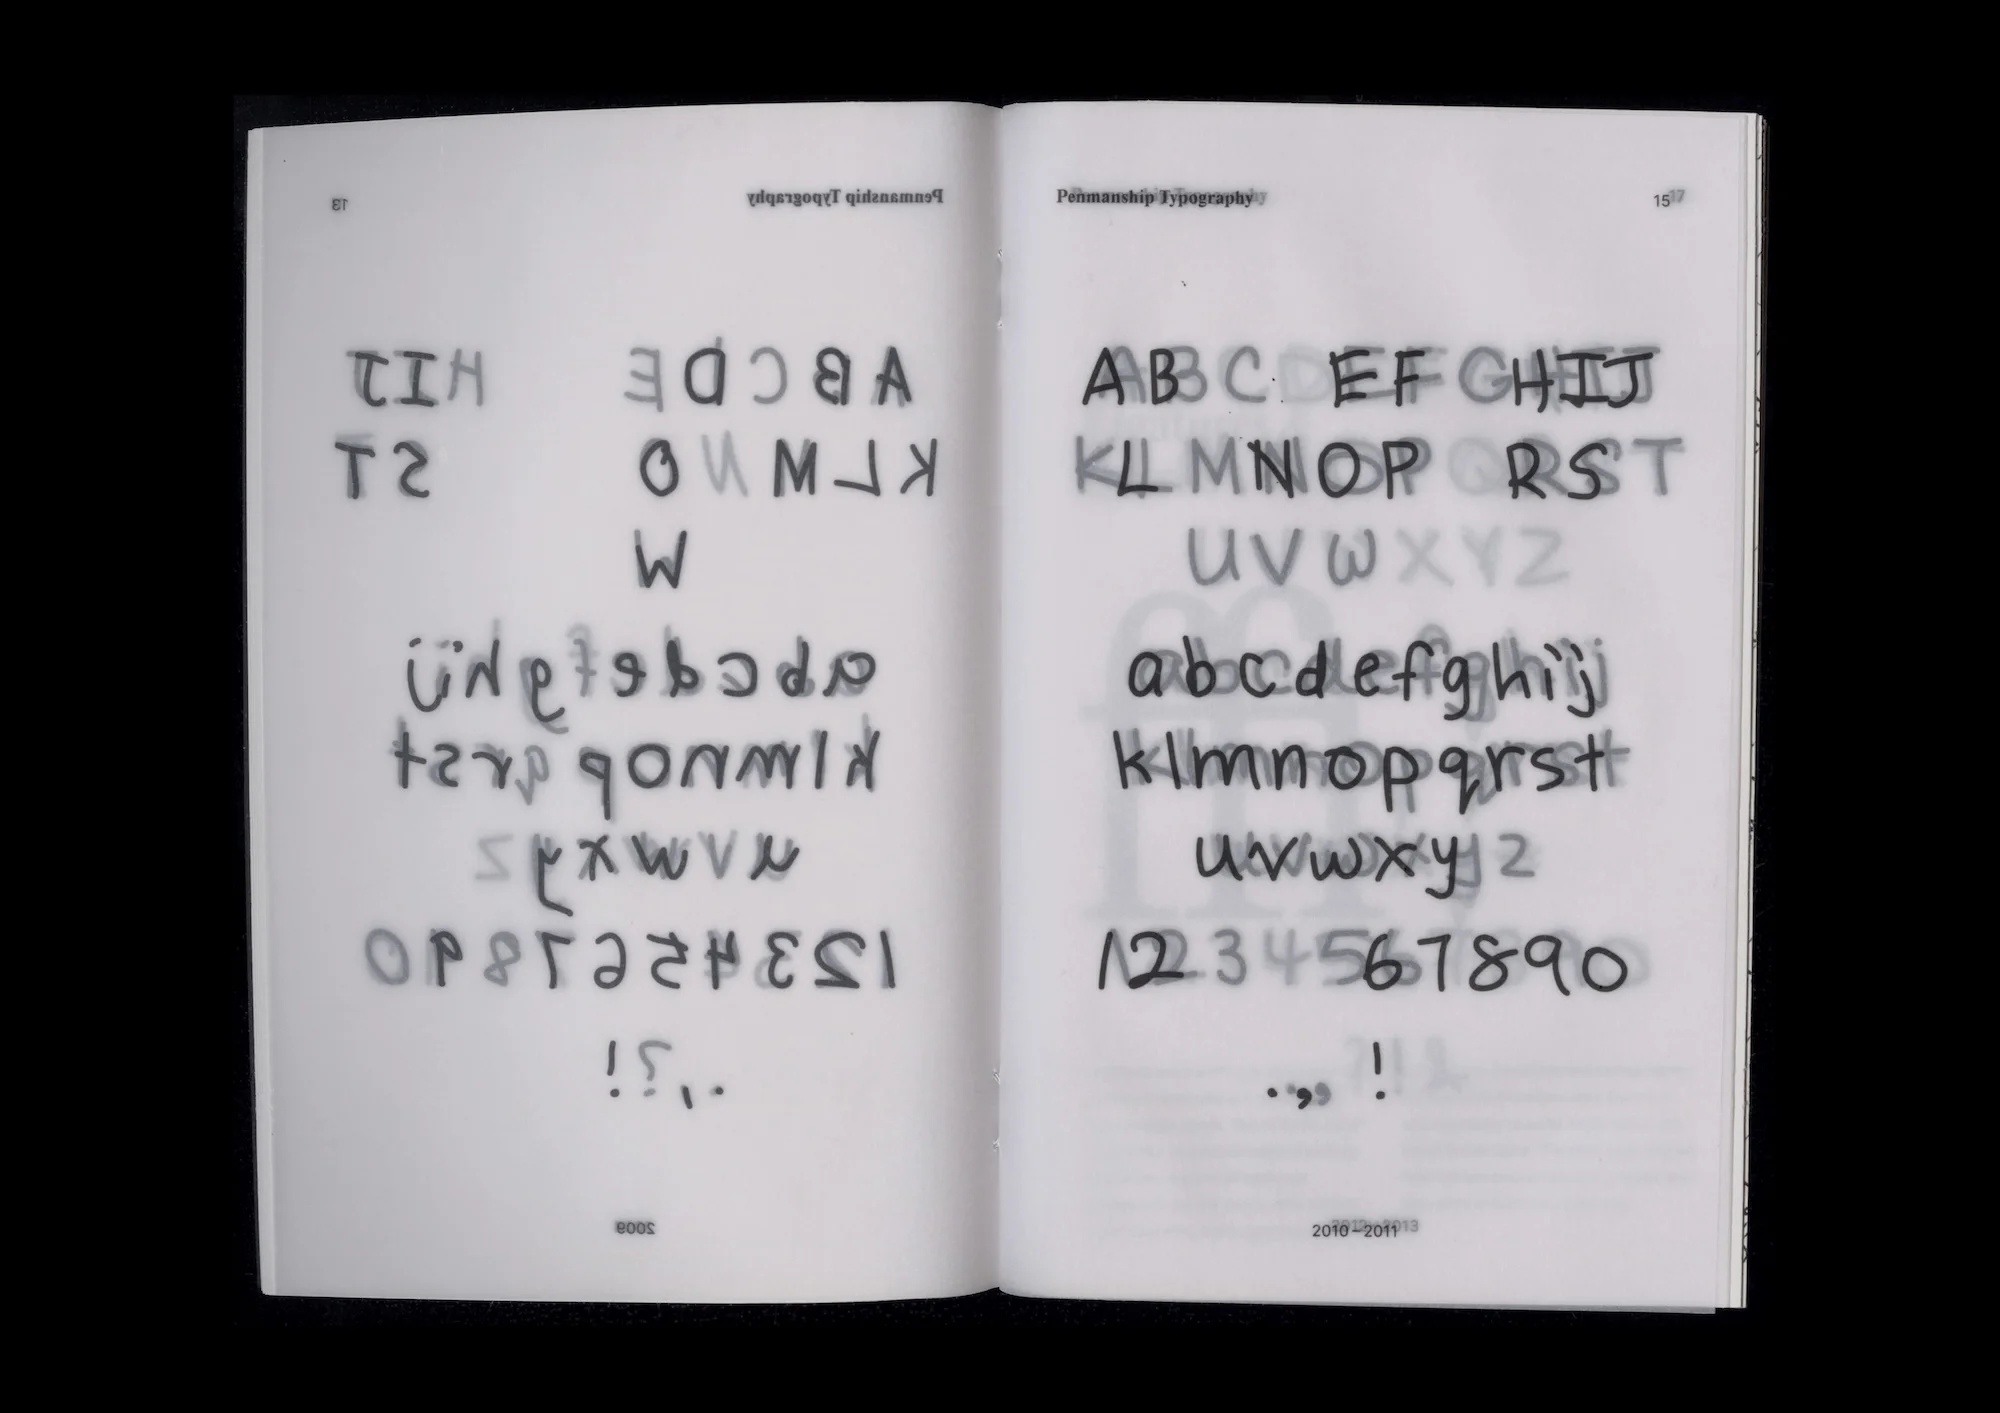 Penmanship Typography 13
A B C D E H I J
K L M N O S T
W
a b c d e f g h i j
k l m n o p q r s t
u v w x y z
1 2 3 4 5 6 7 8 9 0
. , ? !
2009
Penmanship Typography 15 17
A B C D E F G H I J
K L M N O P Q R S T
U V W X Y Z
a b c d e f g h i j
k l m n o p q r s t
u v w x y z
1 2 3 4 5 6 7 8 9 0
. , !
2010–2011